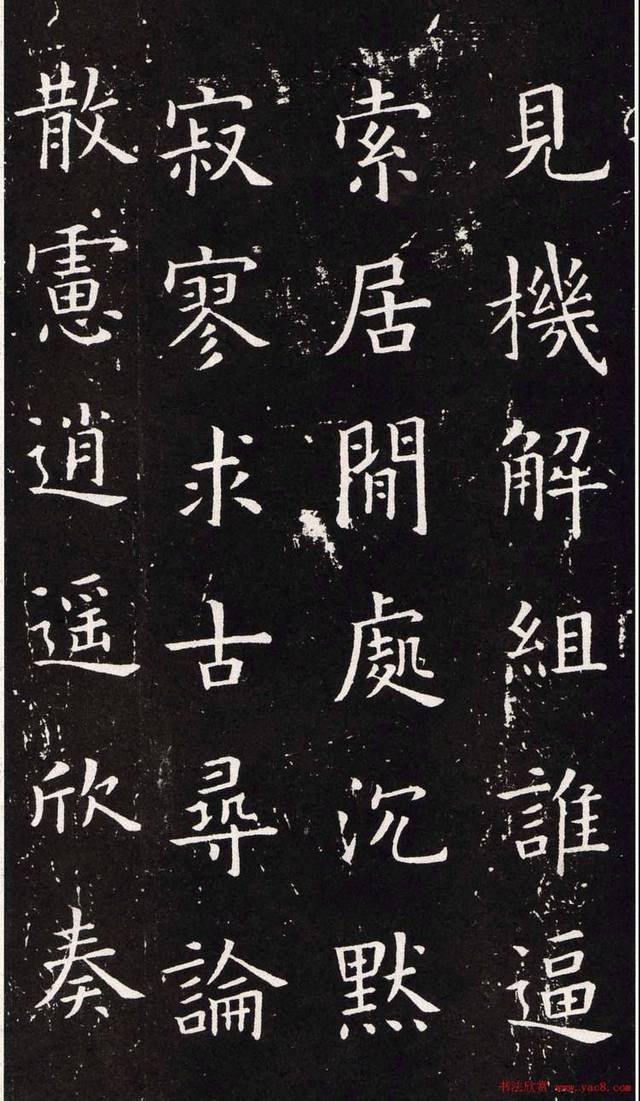 見機解組誰逼
索居閒處沉默
寂寥求古尋論
散慮逍遥欣奏
书法欣赏 www.yac8.com